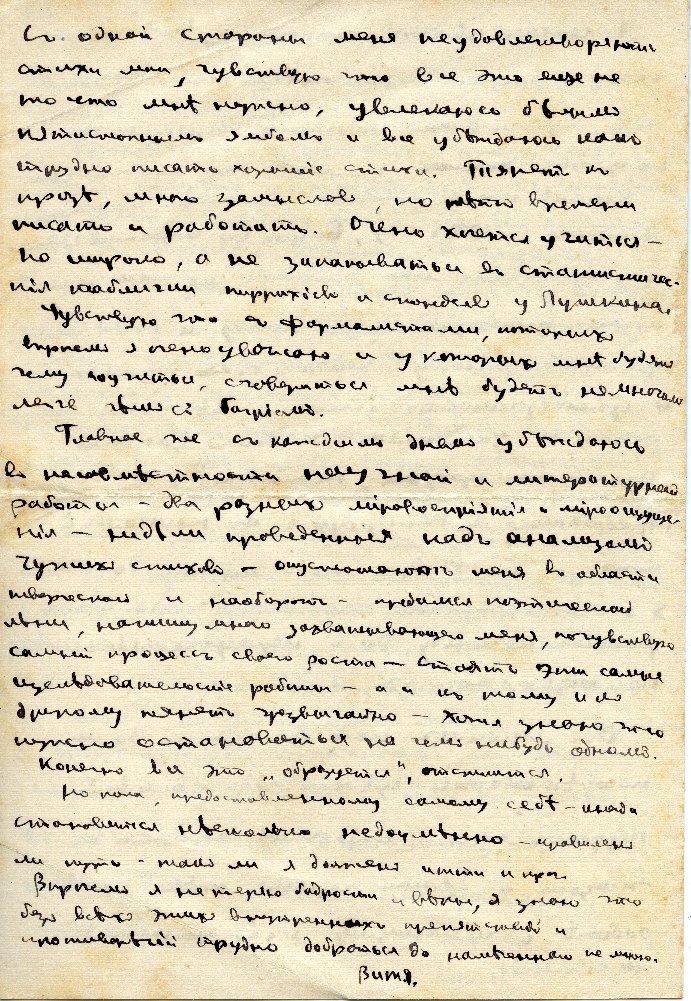 Съ одной стороны меня неудовлетворяютъ
стихи мои, чувствую что все это еще не
то что мнѣ нужно, увлекаюсь бѣлымъ
пятистопнымъ ямбомъ и все убѣждаюсь какъ
трудно писать хорошіе стихи. Тянетъ къ
прозѣ, много замысловъ, но нѣтъ времени
писать и работать. Очень хочется учиться –
но широко, а не закапываться въ статистичес-
кія таблички пиррихіевъ и спондеевъ у Пушкина.
Чувствую что съ формалистами, которыхъ
впрочемъ я очень уважаю и у которыхъ мнѣ будетъ
чему поучиться, сговориться мнѣ будетъ немногимъ
легче чѣмъ съ
Главное же съ каждымъ днемъ убѣждаюсь
въ несовмѣстности научной и литературной
работы – два разныхъ міровоспріятія и міроощуще-
нія – недѣли проведенныя надъ анализомъ
чужихъ стиховъ – опустошаютъ меня въ области
творческой и наоборотъ – предамся поэтической
лѣни, напишу много захватывающаго меня, почувствую
самый процессъ своего роста – стоятъ эти самые
изслѣдовательскіе работы – а и къ тому и къ
другому тянетъ чрезвычайно – хотя знаю что
нужно остановиться на чемъ нибудь одномъ.
Конечно все это „образуется",
Но пока, предоставленному самому себѣ – иногда
становится нѣсколько недоумѣнно – правиленъ
ли путь – такъ ли я долженъ итти и пр.
Впрочемъ я не теряю бодрости и вѣры, я знаю что
безъ всѣхъ этихъ внутреннихъ препятствій и
противорѣчій трудно добраться до намѣченнаго мною.
Витя.